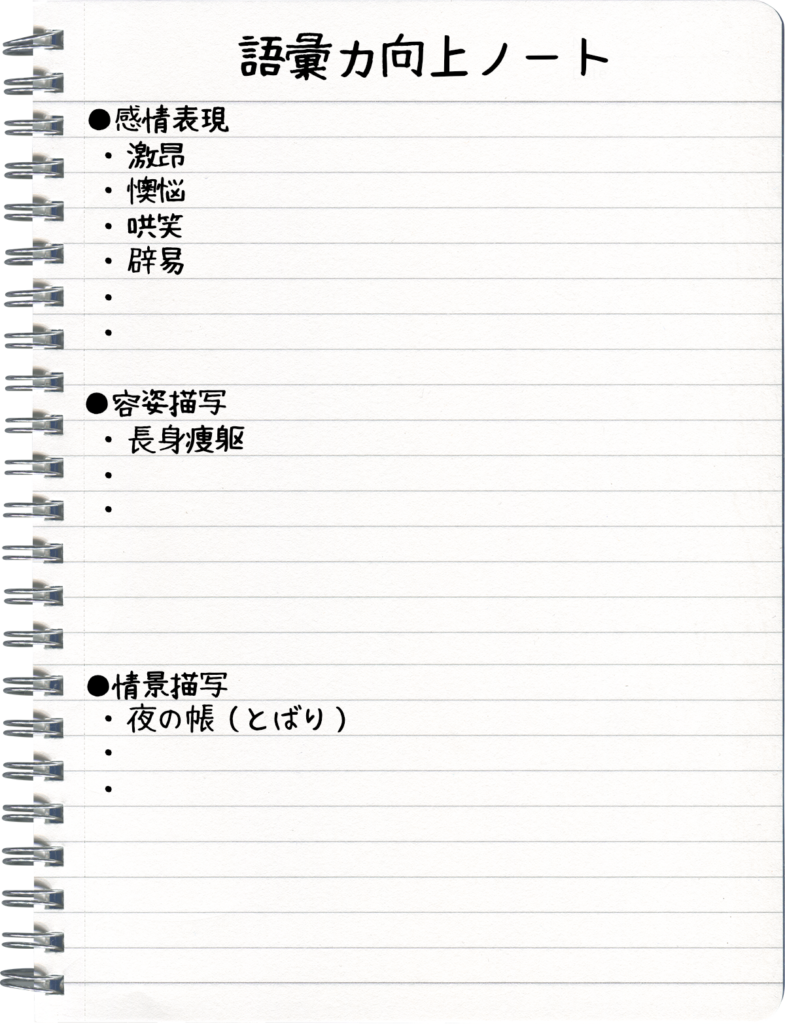 語彙力向上ノート
●感情表現
・激昂
・懊悩
・哄笑
・辟易
・
・
●容姿描写
・長身痩躯
・
・
●情景描写
・夜の帳(とばり)
・
・